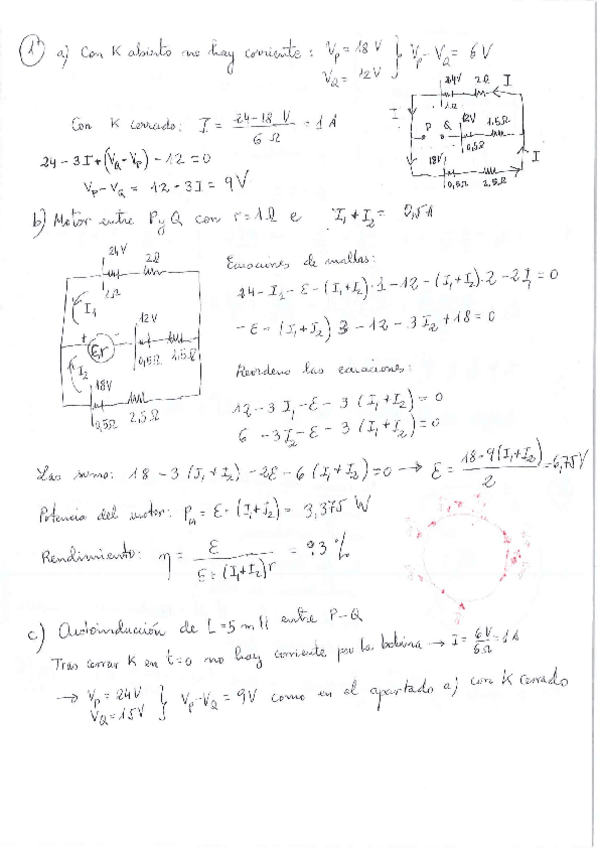 1º a) Con K abierto no hay corriente: Vp = 18 V } Vp - VQ = 6 V
VQ = 12V
24V 2Ω I
1Ω
I
P Q 12V 1.5Ω
0,5Ω
18V
I
0,5Ω 2,5Ω
Con K cerrado: I = (24-18 V)/(6 Ω) = 1 A
24 - 3I + (VQ - Vp) - 12 = 0
Vp - VQ = 12 - 3I = 9V
b) Motor entre P y Q con r = 1Ω e I1 + I2 = 0,5A
24V 2Ω
2Ω
I1
12V
+ ε,r -
0,5Ω 2.5Ω
I2
18V
0,5Ω 2,5Ω
Ecuaciones de mallas:
24 - I1 - ε - (I1+I2)·1 - 12 - (I1+I2)·2 - 2I1 = 0
- ε - (I1+I2) 3 - 12 - 3I2 + 18 = 0
Reordeno las ecuaciones:
12 - 3I1 - ε - 3(I1+I2) = 0
6 - 3I2 - ε - 3(I1+I2) = 0
Las sumo: 18 - 3(I1+I2) - 2ε - 6(I1+I2) = 0 → ε = (18 - 9(I1+I2))/2 = 6,75V
Potencia del motor: Pm = ε·(I1+I2) = 3,375 W
Rendimiento: η = ε/(ε + (I1+I2)r) = 93 %
c) Autoinducción de L = 5 mH entre P-Q
Tras cerrar K en t=0 no hay corriente por la bobina → I = 6V/6Ω = 1A
→ Vp = 24V } Vp - VQ = 9V como en el apartado a) con K cerrado
VQ = 15V